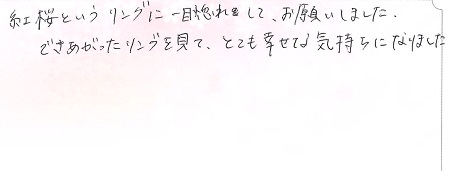 紅桜という リングに一目惚れをして、お願いしました.
できあがったリングを見て、とても幸せな気持ちになりました